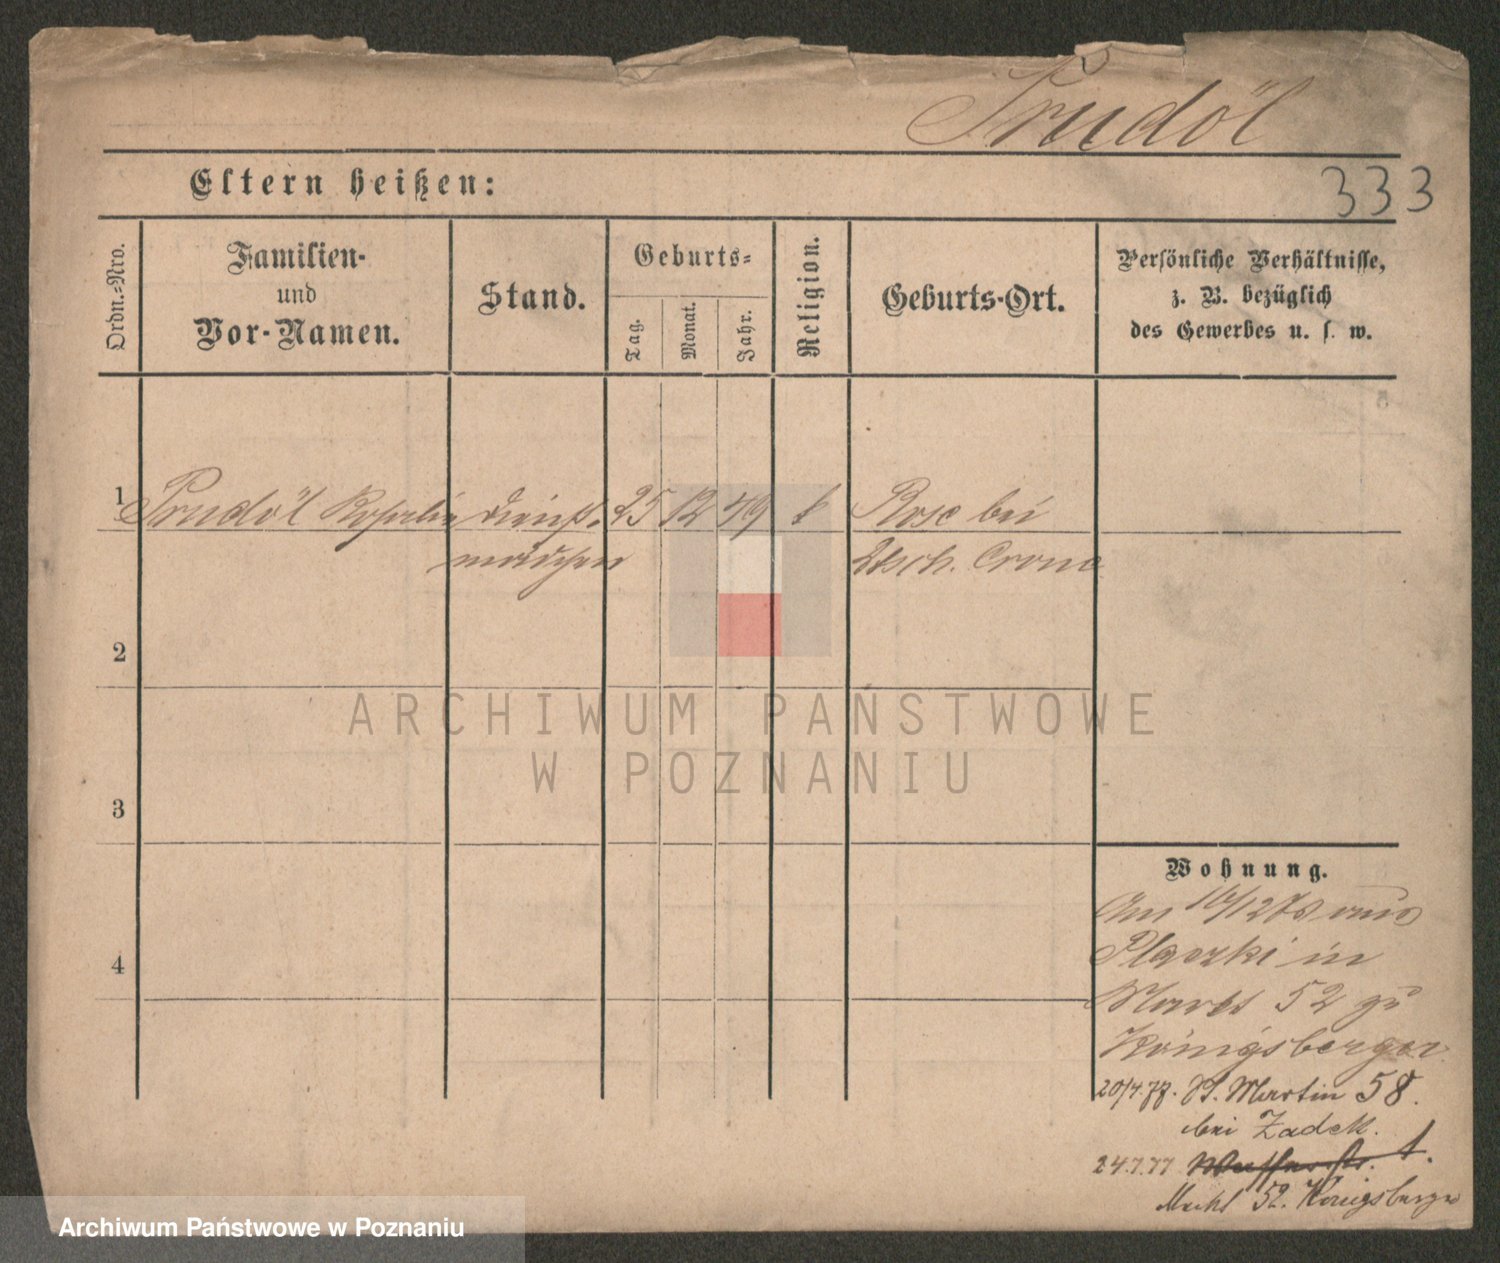 Prudöl
Eltern heißen:
333
Ordn.-Nro.
Familien-
und
Vor-Namen.
Stand.
Geburts-
Tag.
Monat.
Jahr.
Religion.
Geburts-Ort.
Persönliche Verhältnisse,
z. B. bezüglich
des Gewerbes u. s. w.
1 Prudöl Rosalie Dienst- 25 12 49 k Rose bei
mädchen Dtsch. Crone
2
3
4
ARCHIWUM PAŃSTWOWE
W POZNANIU
Wohnung.
Am aus
in
Markt 52 zu
Königsberger
20/4. St. Martin 58.
bei Zadek.
24.7.77 1.
Markt 52. Königsberger
Archiwum Państwowe w Poznaniu